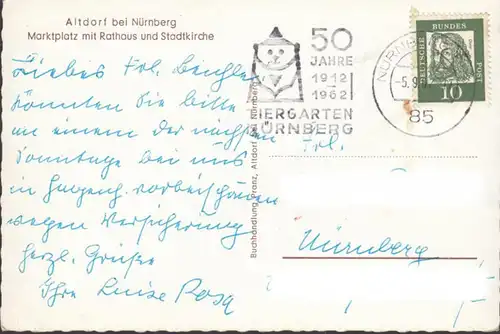 Altdorf bei Nürnberg
Marktplatz mit Rathaus und Stadtkirche
Liebes Frl.
könnten Sie bitte
an einem der nächsten
Sonntage bei uns
in vorbeischauen
wegen Versicherung
herzl. Grüße
Ihre Luise
Buchhandlung Pranz, Altdorf bei Nürnberg
50
JAHRE
1912
1962
TIERGARTEN
NÜRNBERG
NÜRNB
-5.9.
85
DEUTSCHE BUNDES POST
10
Frl.
Nürnberg